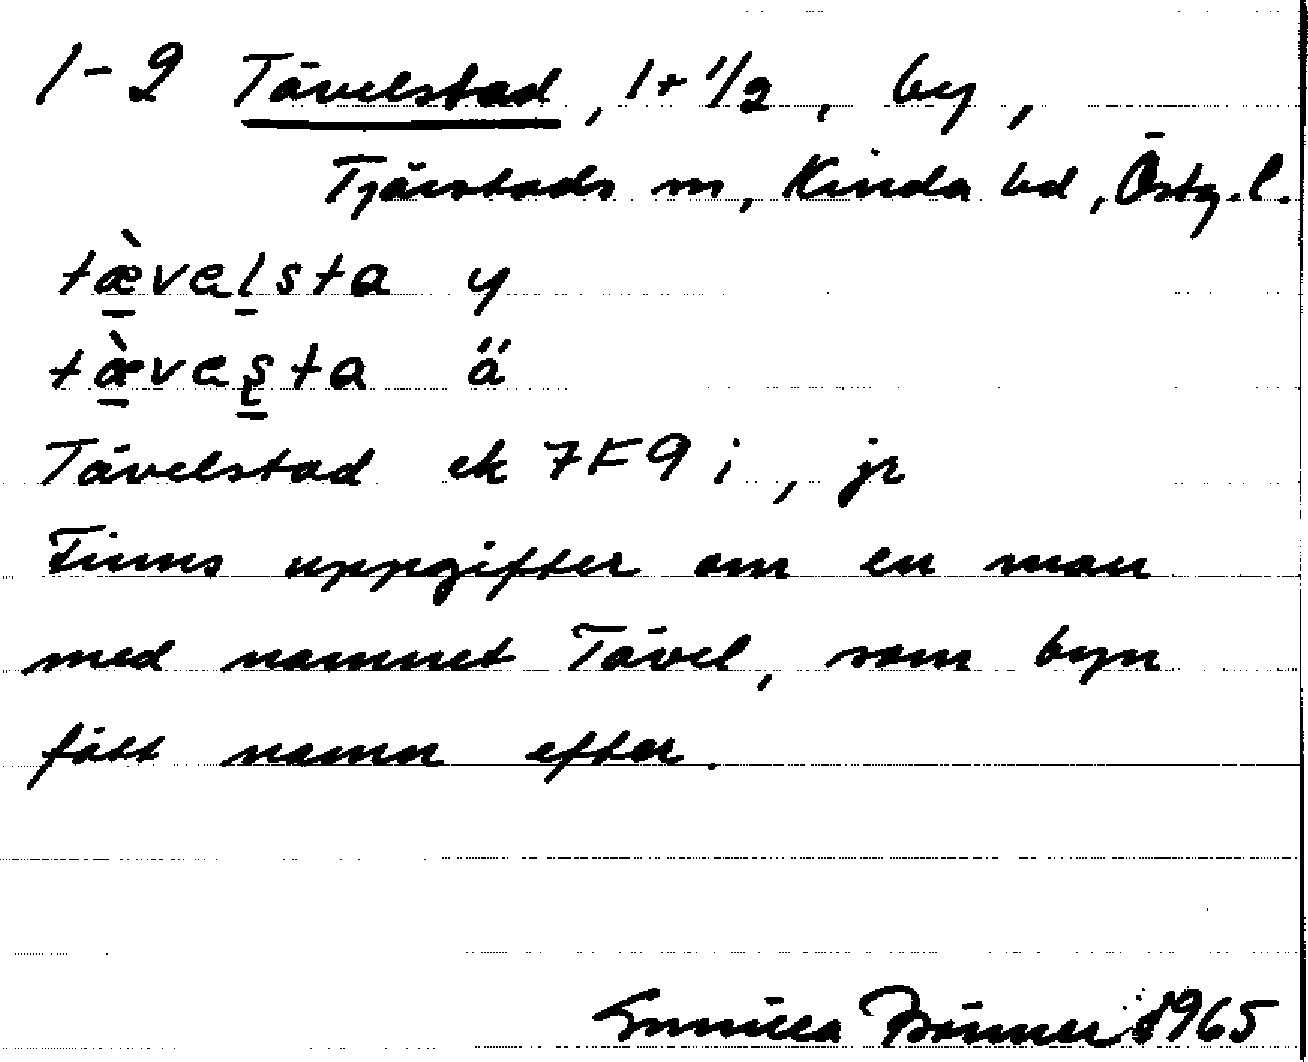 1-2 Tävelstad, 1+1/2, by,
Tjärstads sn, Kinda hd, Östg.l.
tæ̀velsta y
tæ̀vesta ä
Tävelstad ek 7F9 i, jr
Finns uppgifter om en man
med namnet Tävel, som byn
fått namn efter.
Gunilla 1965